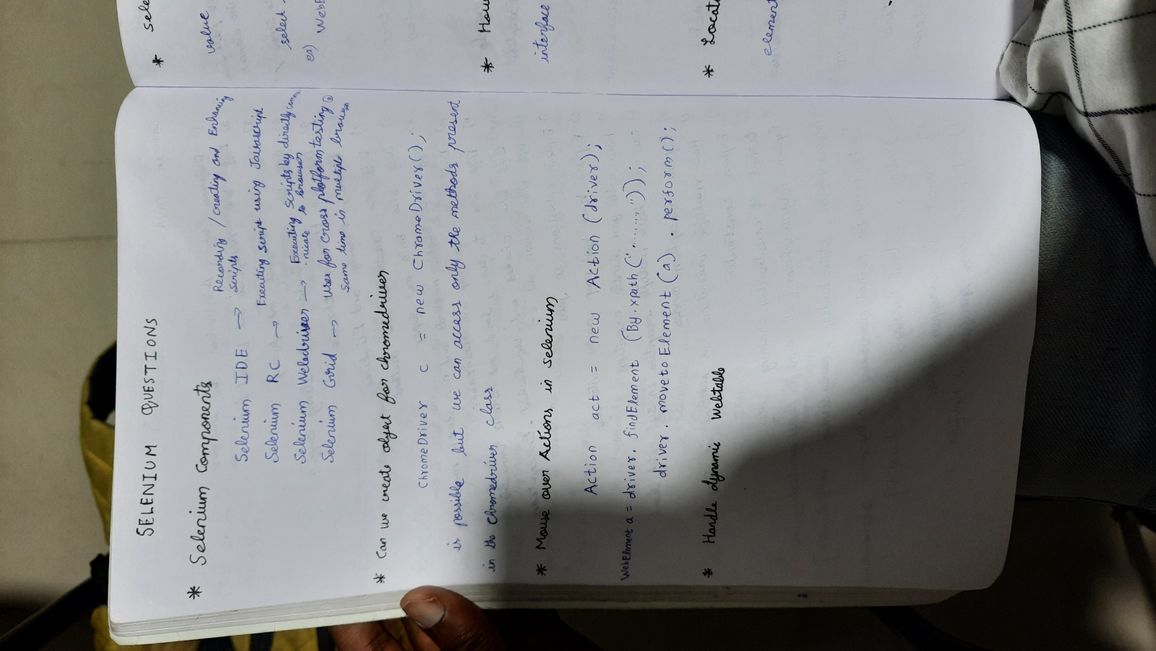 SELENIUM QUESTIONS
* Selenium Components
Selenium IDE → Recording / creating and Enhancing
Scripts
Selenium RC → Executing Script using Javascript
Selenium Webdriver → Executing Scripts by directly commu
-nicate to browser
Selenium Grid → user for cross platform testing @
same time in multiple browser
* Can we create object for chromedriver
ChromeDriver c = new ChromeDriver();
is possible but we can access only the methods present
in the chromedriver class
* Mouse over Actions in selenium
Action act = new Action (driver);
WebElement a = driver. findElement (By.xpath ("........"));
driver. moveto Element (a) . perform();
* Handle dynamic Webtable
* Sele
value
select
ex)
WebE
* How
interface
* Locat
element